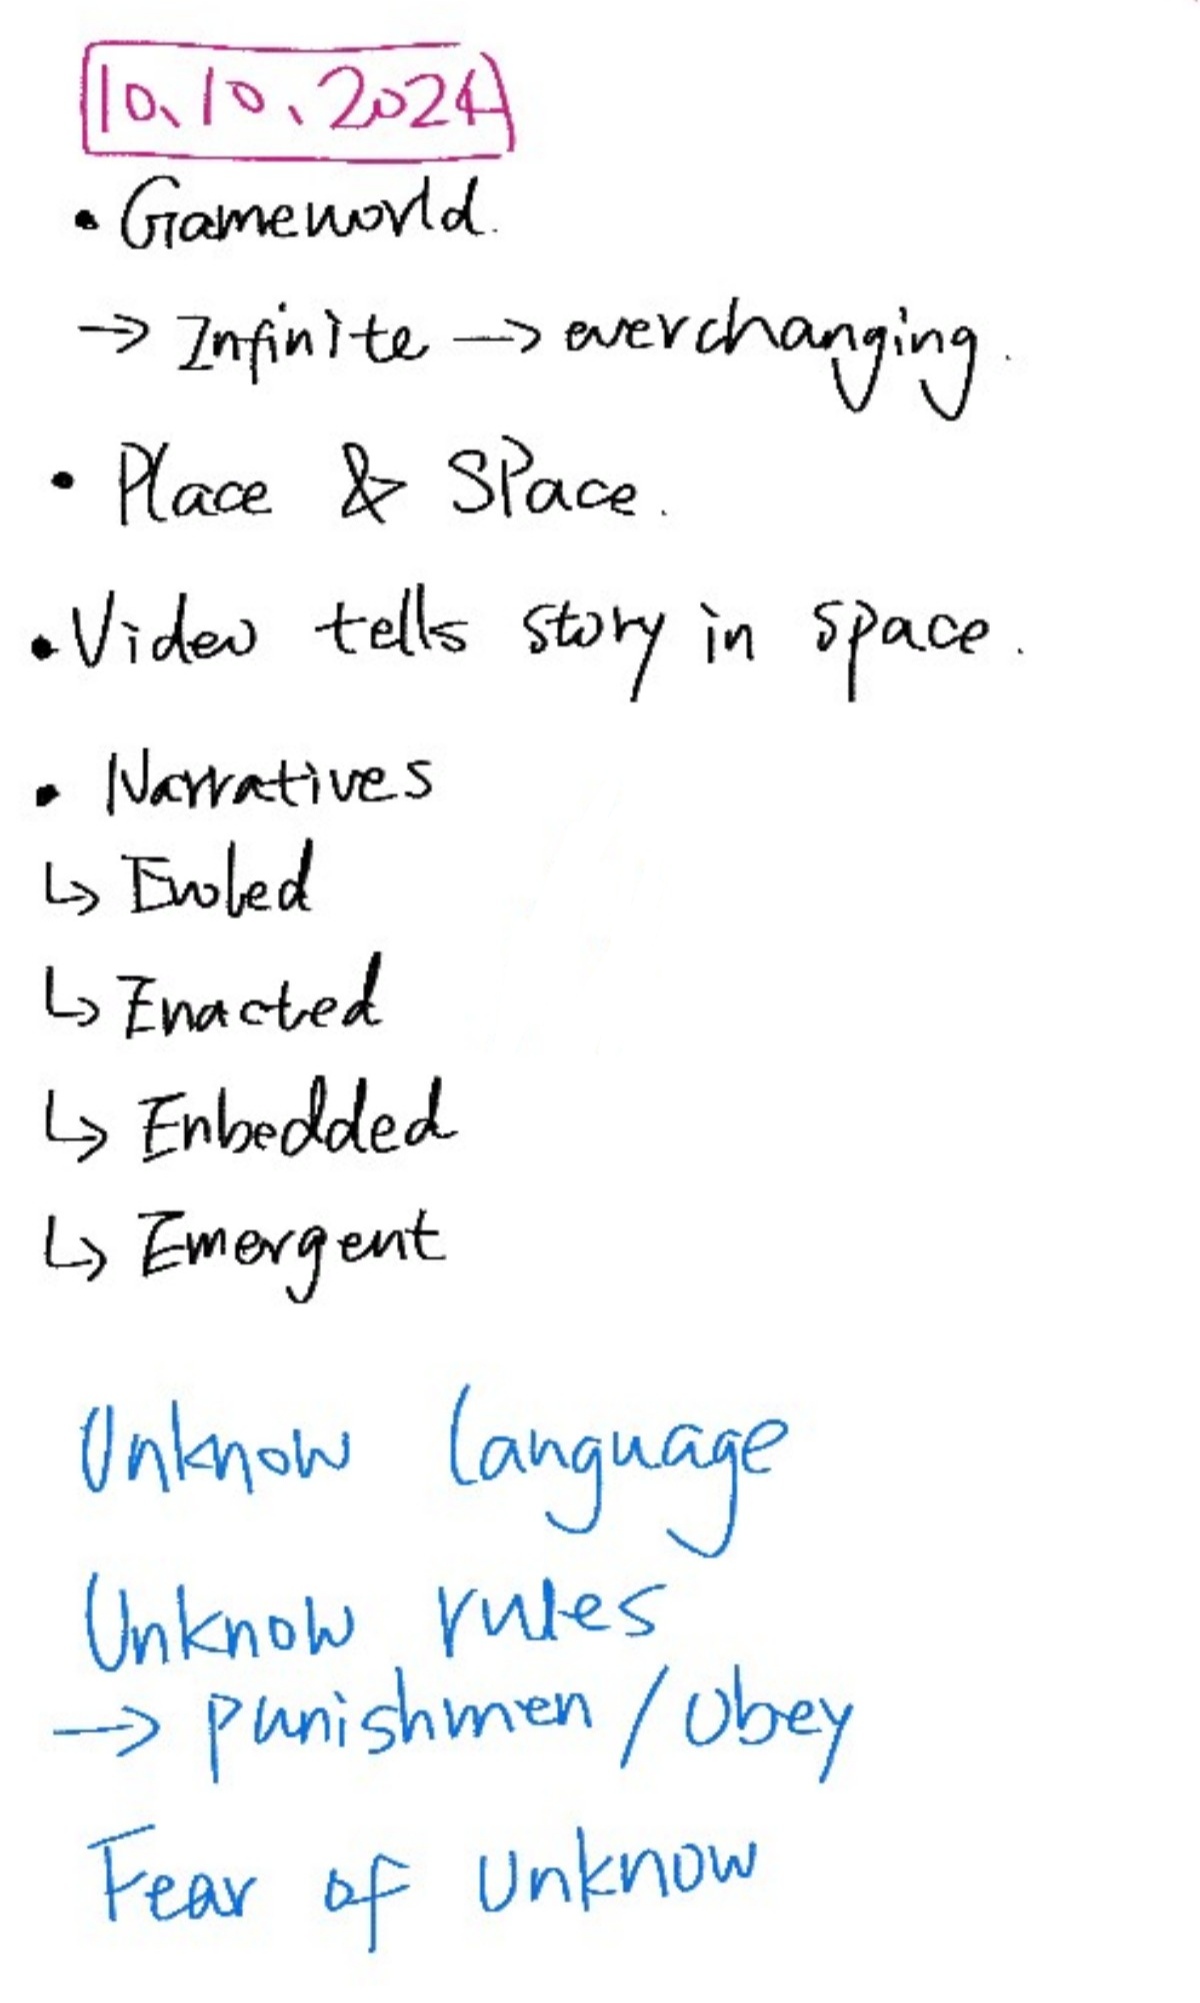 10.10.2024
• Gameworld.
→ Infinite → everchanging.
• Place & SPace.
• Video tells story in space.
• Narratives
↳ Evoled
↳ Enacted
↳ Enbedded
↳ Emergent
Unknow language
Unknow rules
→ punishmen / obey
Fear of unknow